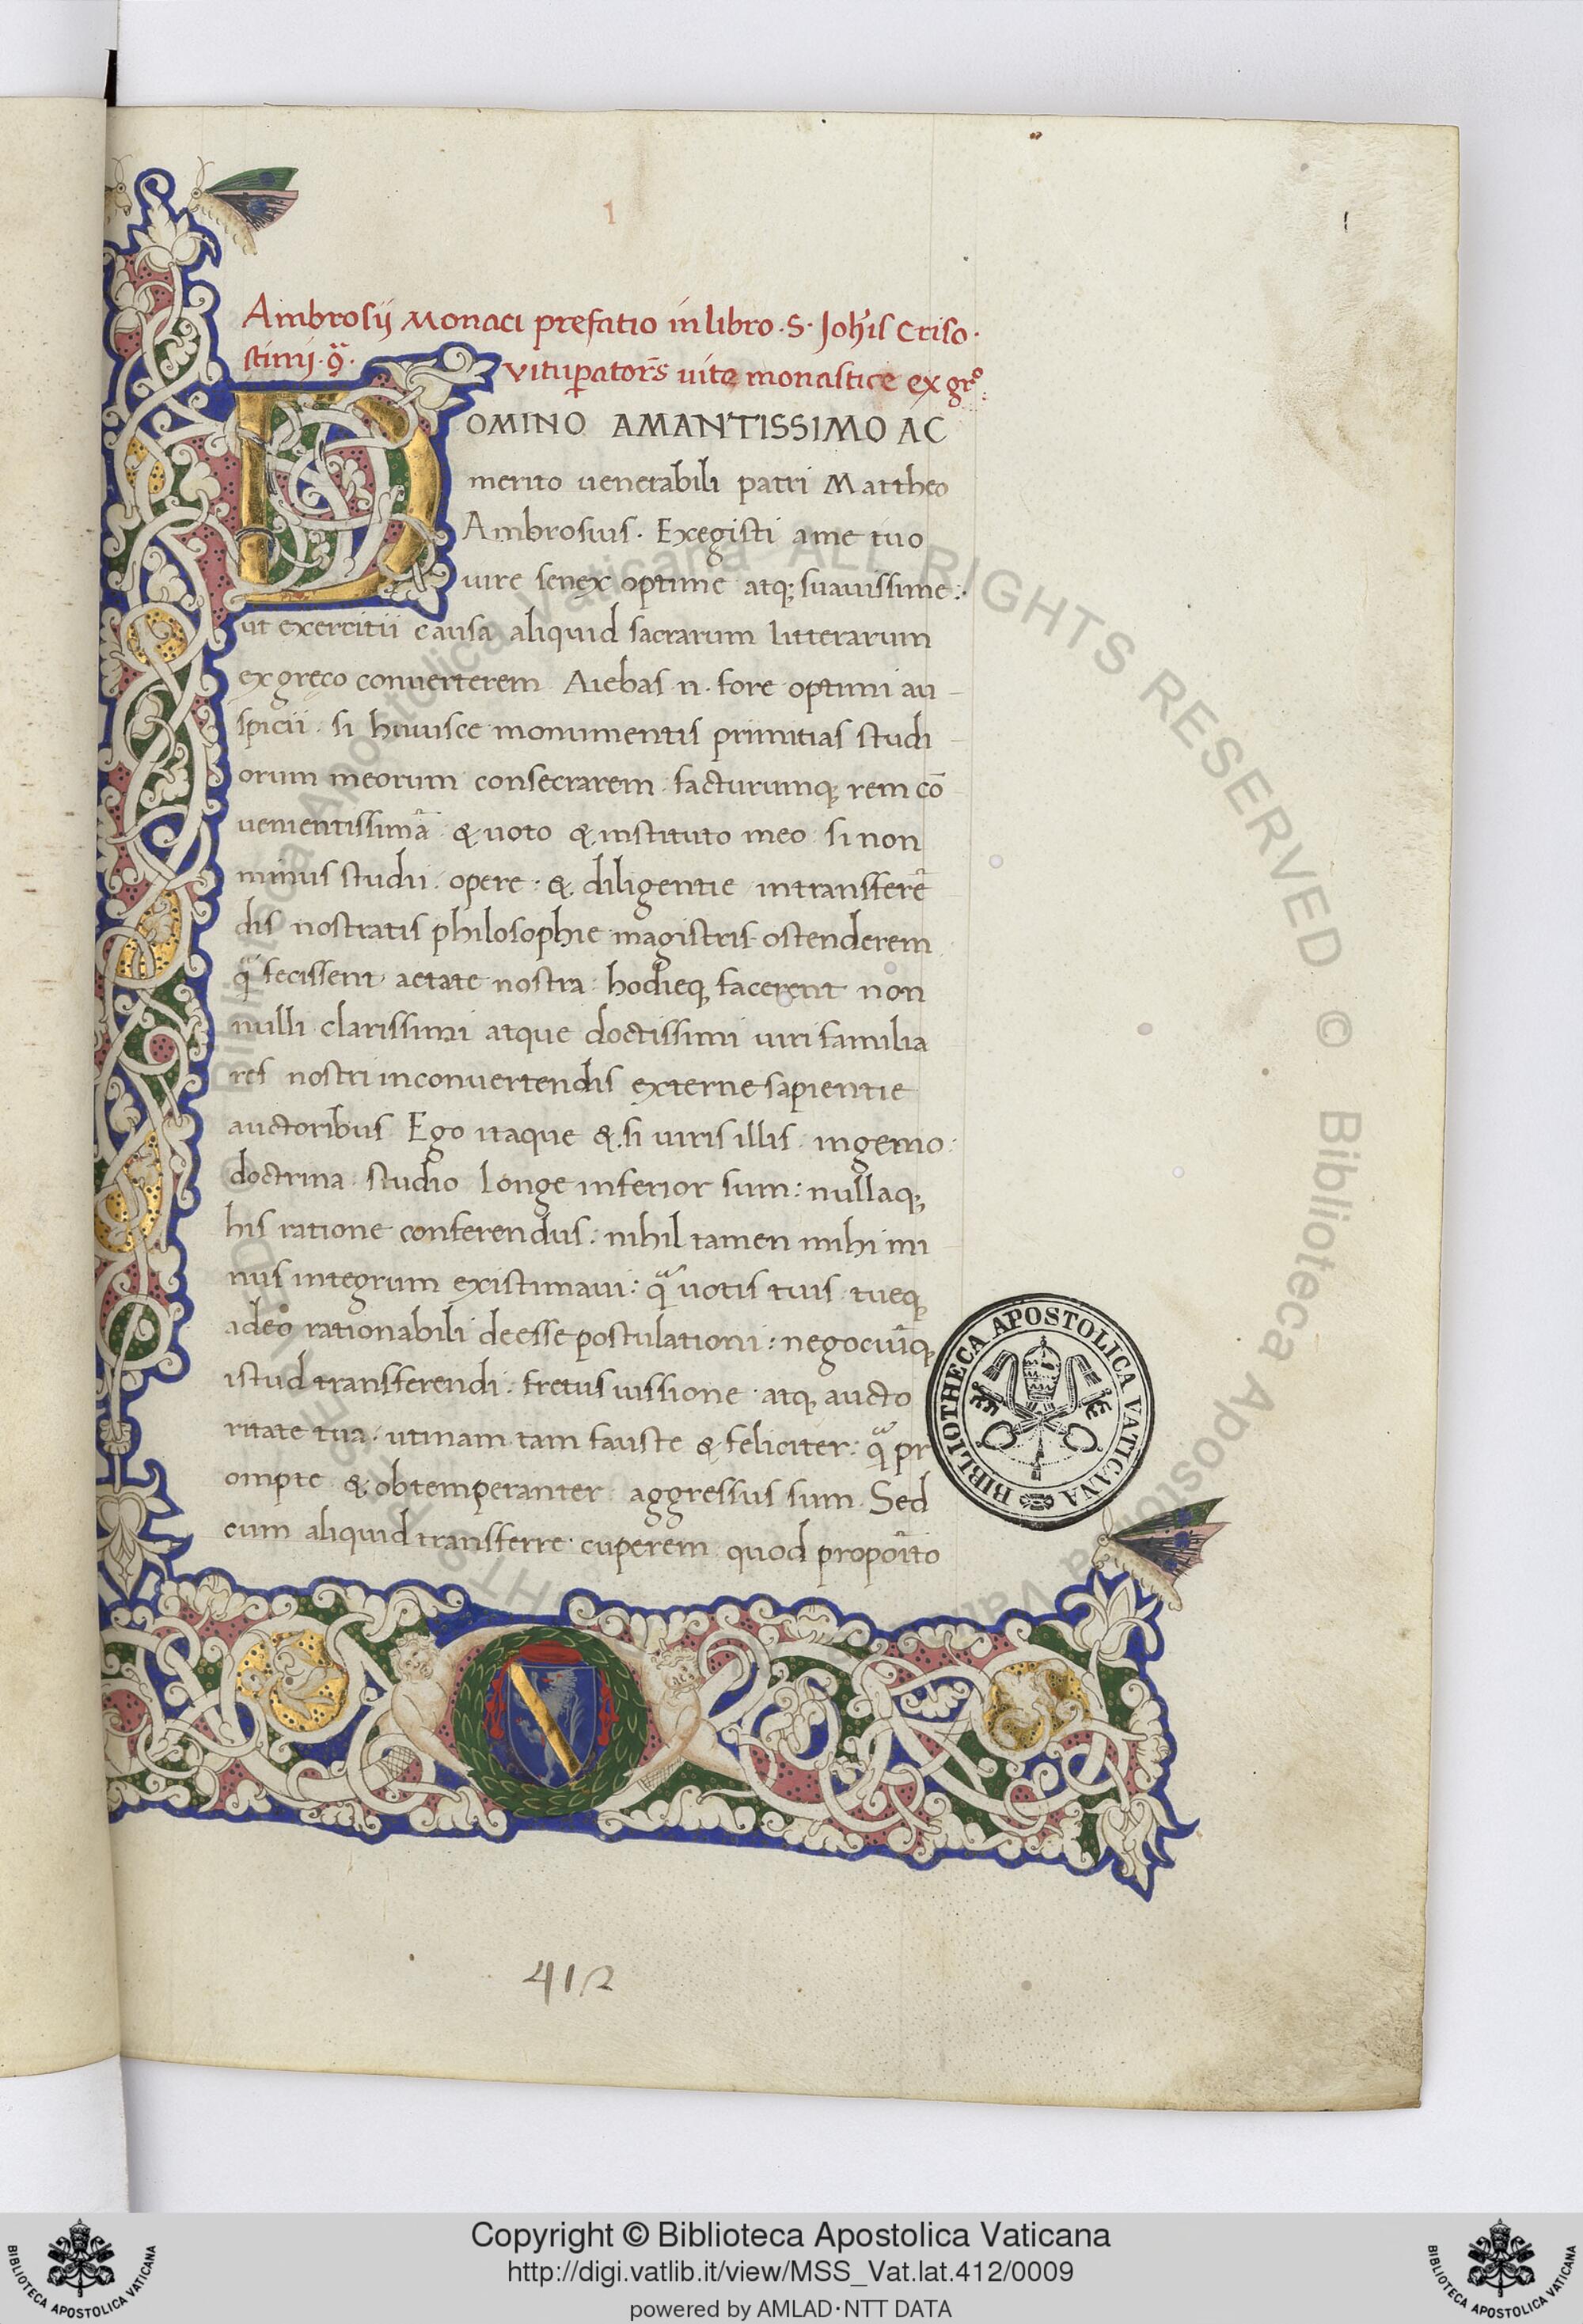 1
Ambrosij Monaci prefatio in libro · S · Joh̄is Criso ·
stimi · 9̄ · vitup̱ator̄s uitę monastice ex gr̊o :
DOMINO AMANTISSIMO AC
merito uenerabili patri Mattheo
Ambrosius · Exegisti a me tuo
iure senex optime atq; suauissime :
ut exercitii causa aliquid sacrarum litterarum
ex gręco conuerterem Aiebas n · fore optimi au
spicii · si huiusce monumentis primitias studi
orum meorum consecrarem · facturumq; rem cō
uenientissimā & uoto & instituto meo si non
minus studii · opere · & diligentie in transferē
dis nostratis philosophie magistris ostenderem
q̄ fecissent aetate nostra · hodieq; facerent non
nulli clarissimi atque doctissimi uiri familia
res nostri in conuertendis externe sapientie
auctoribus Ego itaque & si uiris illis ingenio ·
doctrina · studio longe inferior sum : nullaq;
his ratione conferendus : nihil tamen mihi mi
nus integrum existimaui : q̄ uotis tuis tueq;
adeo rationabili deesse postulationi : negociūq;
istud transferendi · fretus iussione · atq; aucto
ritate tua · utinam tam fauste & feliciter : q̄ pr
ompte & obtemperanter aggressus sum · Sed
cum aliquid transferre cuperem quod propoīto
BIBLIOTHECA APOSTOLICA VATICANA
412
Biblioteca Apostolica Vaticana ALL RIGHTS RESERVED © Biblioteca Apostolica Vaticana
Copyright © Biblioteca Apostolica Vaticana
http://digi.vatlib.it/view/MSS_Vat.lat.412/0009
powered by AMLAD·NTT DATA
BIBLIOTECA APOSTOLICA VATICANA
BIBLIOTECA APOSTOLICA VATICANA